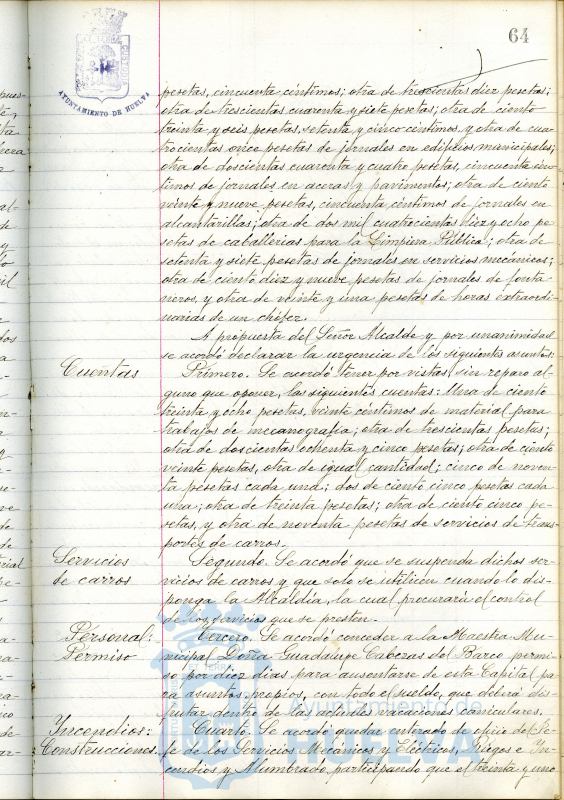 64
AYUNTAMIENTO DE HUELVA
pesetas, cincuenta céntimos; otra de trescientas diez pesetas;
otra de trescientas cuarenta y siete pesetas; otra de ciento
treinta y seis pesetas, setenta y cinco céntimos, y otra de cua-
trocientas once pesetas de jornales en edificios municipales;
otra de doscientas cuarenta y cuatro pesetas, cincuenta cén-
timos de jornales en aceras y pavimentos; otra de ciento
veinte y nueve pesetas, cincuenta céntimos de jornales en
alcantarillas; otra de dos mil cuatrocientas diez y ocho pe-
setas de caballerías para la Limpieza Pública; otra de
setenta y siete pesetas de jornales en servicios mecánicos;
otra de ciento diez y nueve pesetas de jornales de fonta-
neros, y otra de veinte y una pesetas de horas extraordi-
narias de un chófer.
A propuesta del Señor Alcalde y por unanimidad
se acordó declarar la urgencia de los siguientes asuntos:
Cuentas
Primero. Se acordó tener por vistas, sin reparo al-
guno que oponer, las siguientes cuentas: Una de ciento
treinta y ocho pesetas, veinte céntimos de material para
trabajos de mecanografía; otra de trescientas pesetas;
otra de doscientas ochenta y cinco pesetas; otra de ciento
veinte pesetas, otra de igual cantidad; cinco de noven-
ta pesetas cada una; dos de ciento cinco pesetas cada
una; otra de treinta pesetas; otra de ciento cinco pe-
setas, y otra de noventa pesetas de servicios de trans-
portes de carros.
Servicios
de carros
Segundo. Se acordó que se suspenda dichos ser-
vicios de carros y que solo se utilicen cuando lo dis-
ponga la Alcaldía, la cual procurará el control
de los servicios que se presten.
Personal:
Permiso
Tercero. Se acordó conceder a la Maestra Mu-
nicipal Doña Guadalupe Cabezas del Barco permi-
so por diez días para ausentarse de esta Capital pa-
ra asuntos propios, con todo el sueldo, que deberá dis-
frutar dentro de las actuales vacaciones caniculares.
Incendios:
Construcciones.
Cuarto. Se acordó quedar enterado de oficio del Je-
fe de los Servicios Mecánicos y Eléctricos, Riegos e In-
cendios y Alumbrado, participando que el treinta y uno
Ayuntamiento de
HUELVA